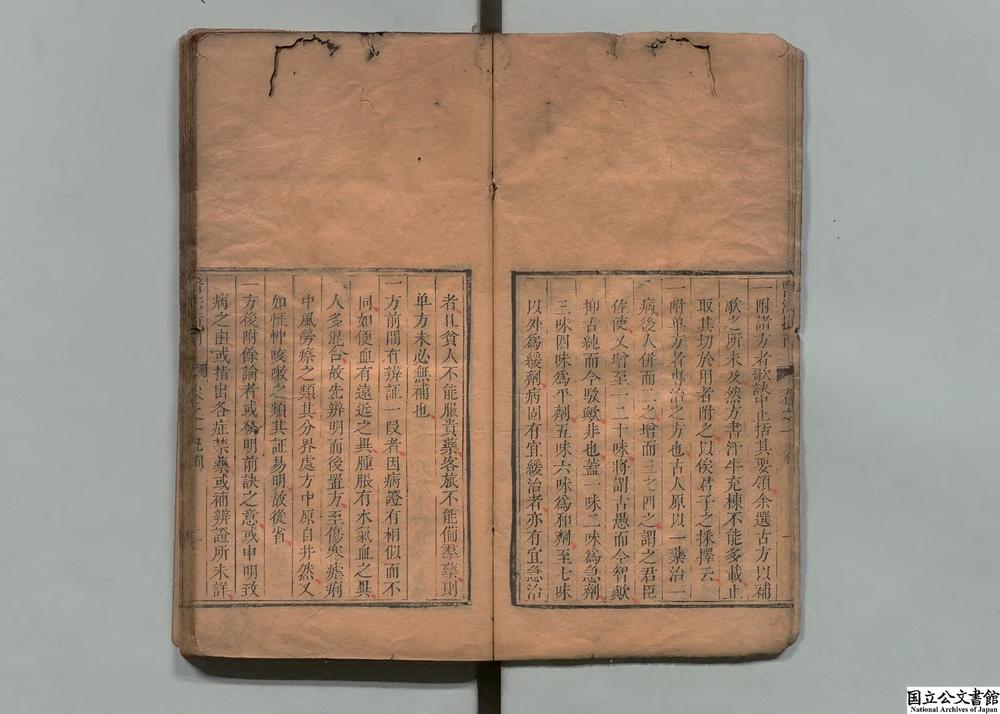 一附諸方者歌訣中止括其要領余選古方以補
歌之所未及然方書汗牛充棟不能多載止
取其切於用者附之以俟君子之採擇云
一附单方者専治之方也古人原以一藥治一
病後人併而二之增而三之四之謂之君臣
佐使又增至一二十味將謂古愚而今智歟
抑古純而今駁歟非也蓋一味二味為急劑
三味四味為平劑五味六味為和劑至七味
以外為緩劑病固有宜緩治者亦有宜急治
者且貧人不能服貴藥客旅不能備羣藥則
单方未必無補也
一方前間有辨証一段者因病證有相似而不
同如便血有遠近之異腫脹有水氣血之異
人多混合故先辨明而後置方至傷寒瘧痢
中風勞瘵之類其分界處方中原自井然又
如怔忡咳嗽之類其証易明故從省
一方後附餘論者或發明前訣之意或申明致
病之由或指出各症禁藥或補辨證所未詳
国立公文書館
National Archives of Japan